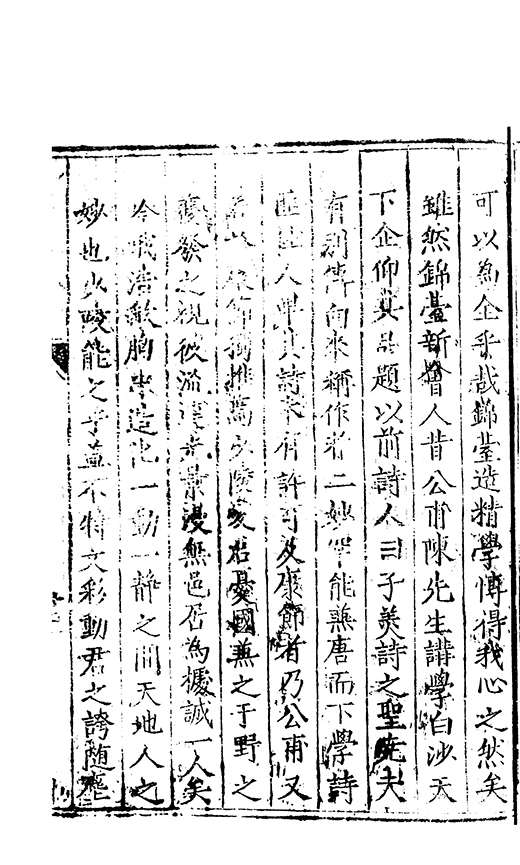 可以為企乎哉錦臺造精學博得我心之然矣
雖然錦臺新會人昔公甫陳先生講學白沙天
下企仰其品題以前詩人曰子美詩之聖堯夫
有別傳向來稱作者二妙罕能兼唐而下學詩
人其詩未有許可及康節者乃公甫又
康節獨推焉少陵愛君憂國兼之于野之
發之視彼流連光景漫無邑居為據誠一人矣
今哦浩歌胸次造化一動一靜之間天地人之
妙也少陵能之乎蓋不特文彩動君之誇隨塵